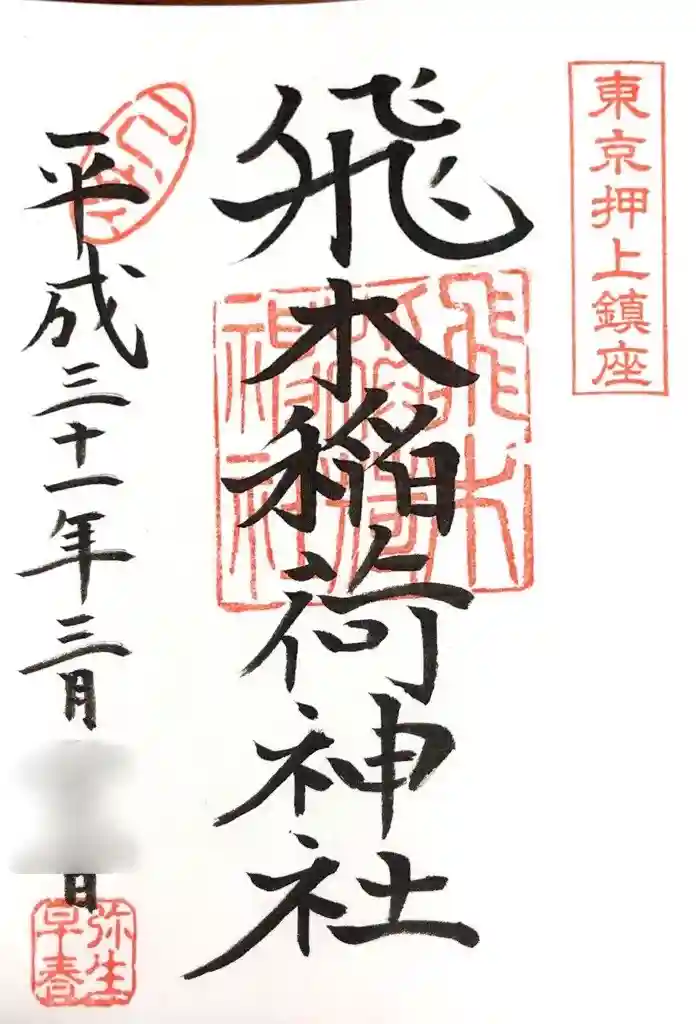 東京押上鎮座
飛木稲荷神社
飛木
稲荷
神社
平成三十一年三月
日
弥生
早春